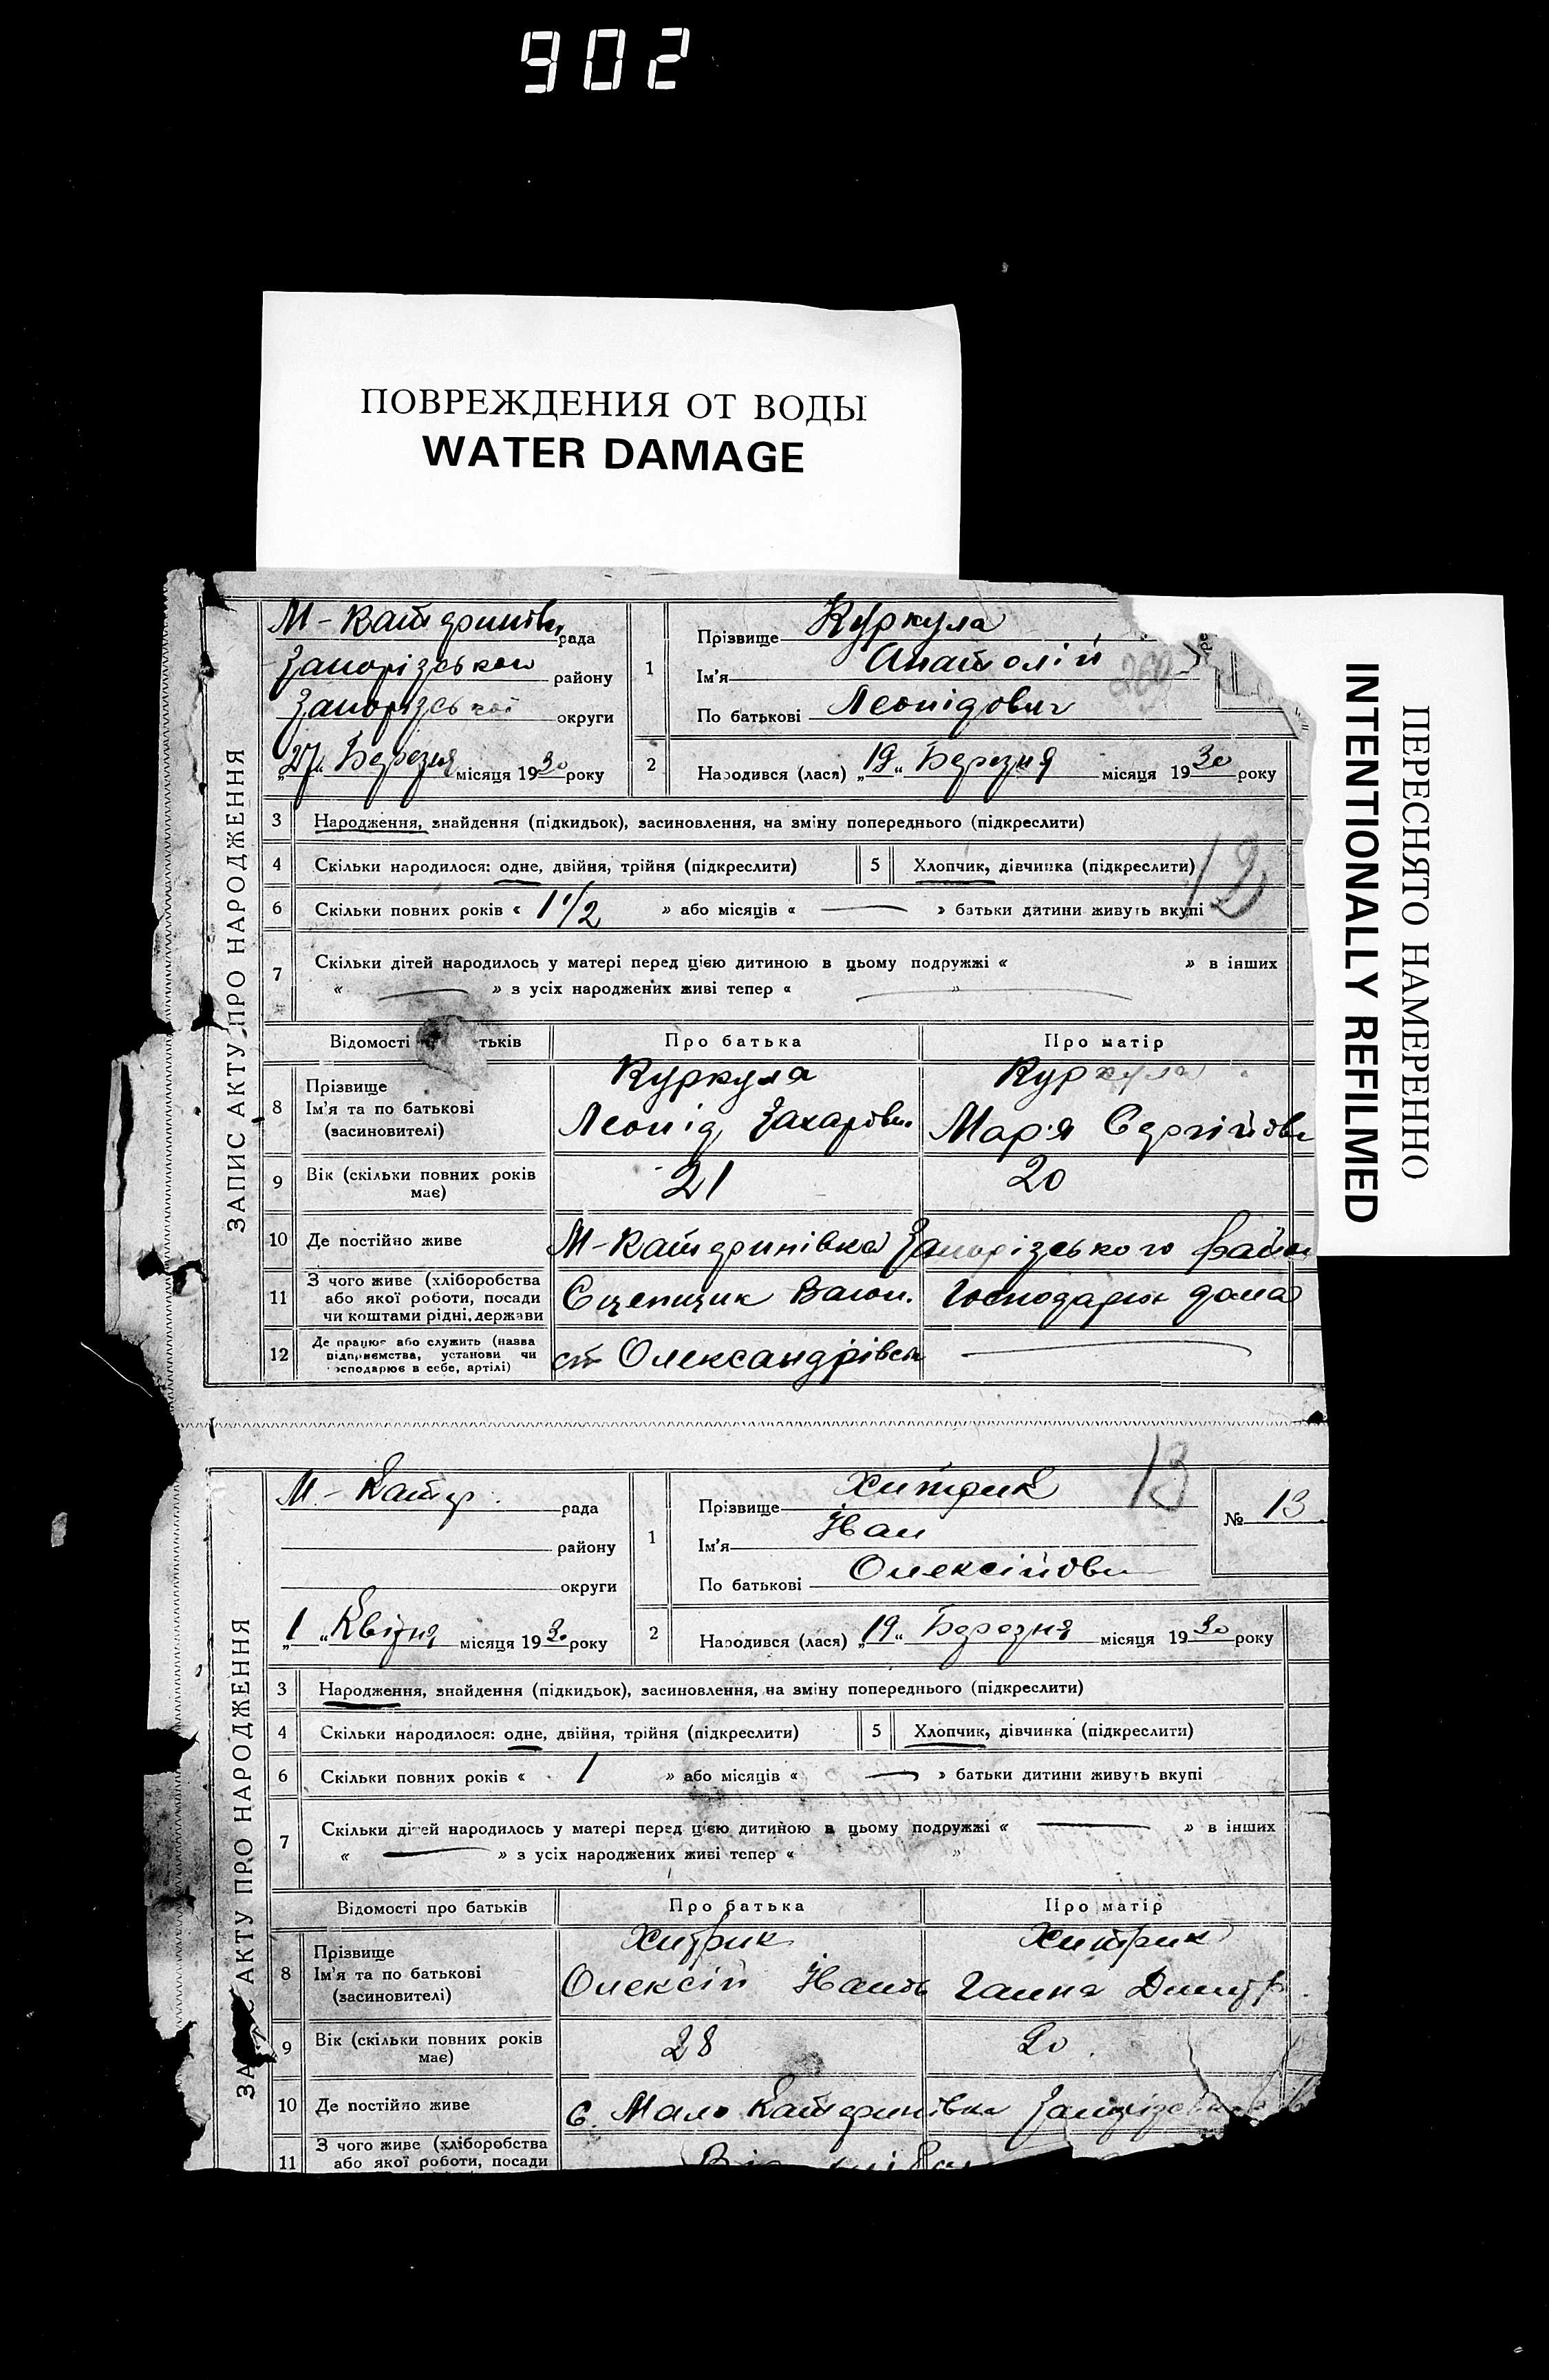 902
ПОВРЕЖДЕНИЯ ОТ ВОДЫ
WATER DAMAGE
ПЕРЕСНЯТО НАМЕРЕННО
INTENTIONALLY REFILMED
ЗАПИС АКТУ ПРО НАРОДЖЕННЯ
М-Катеринів рада
Запорізького району
Запорізської округи
„27“ Березня місяця 1930 року
1
Прізвище Куркула
Ім'я Анатолій
260
По батькові Леонідович
2
Народився (лася) „19“ Березня місяця 1930 року
3 Народження, знайдення (підкидьок), засиновлення, на зміну попереднього (підкреслити)
4 Скільки народилося: одне, двійня, трійня (підкреслити) 5 Хлопчик, дівчинка (підкреслити)
12
6 Скільки повних років « 1 1/2 » або місяців « — » батьки дитини живуть вкупі
7 Скільки дітей народилось у матері перед цією дитиною в цьому подружжі « » в інших
« — » з усіх народжених живі тепер « — »
Відомості тьків Про батька Про матір
8 Прізвище Куркула Куркула
Ім'я та по батькові Леонід Захарович Мар'я Сергіївн
(засиновителі)
9 Вік (скільки повних років має) 21 20
10 Де постійно живе М-Катеринівка Запорізського Район
11 З чого живе (хліборобства
або якої роботи, посади
чи коштами рідні, держави
Сцепщик Вагон. Господарює дома
12 Де працює або служить (назва
підприємства, установи чи
осподарює в себе, артілі)
ст Олександрівськ —
ЗА АКТУ ПРО НАРОДЖЕННЯ
М.-Катер. рада
району
округи
„1“ Квітня місяця 1930 року
1
Прізвище Хитрик
13
№ 13
Ім'я Іван
По батькові Олексійови
2
Народився (лася) „19“ Березня місяця 1930 року
3 Народження, знайдення (підкидьок), засиновлення, на зміну попереднього (підкреслити)
4 Скільки народилося: одне, двійня, трійня (підкреслити) 5 Хлопчик, дівчинка (підкреслити)
6 Скільки повних років « 1 » або місяців « — » батьки дитини живуть вкупі
7 Скільки дітей народилось у матері перед цією дитиною в цьому подружжі « — » в інших
« — » з усіх народжених живі тепер « »
Відомості про батьків Про батька Про матір
8 Прізвище Хитрик Хитрик
Ім'я та по батькові Олексій Іванов Ганна Дмитр.
(засиновителі)
9 Вік (скільки повних років має) 28 20.
10 Де постійно живе с. Мало Катеринівка
11 З чого живе (хліборобства
або якої роботи, посади